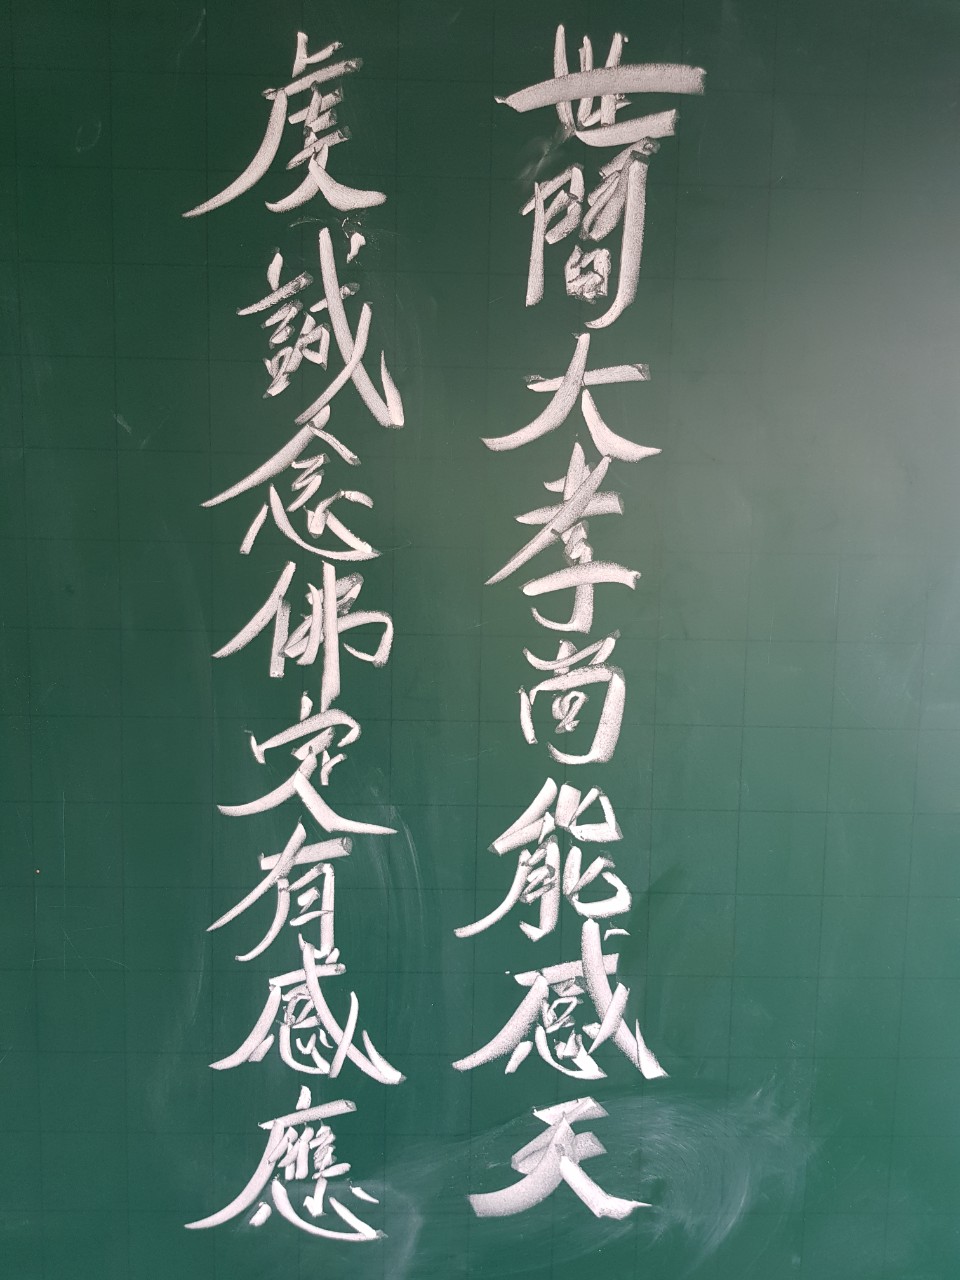 世間大孝尚能感天
虔誠念佛定有感應